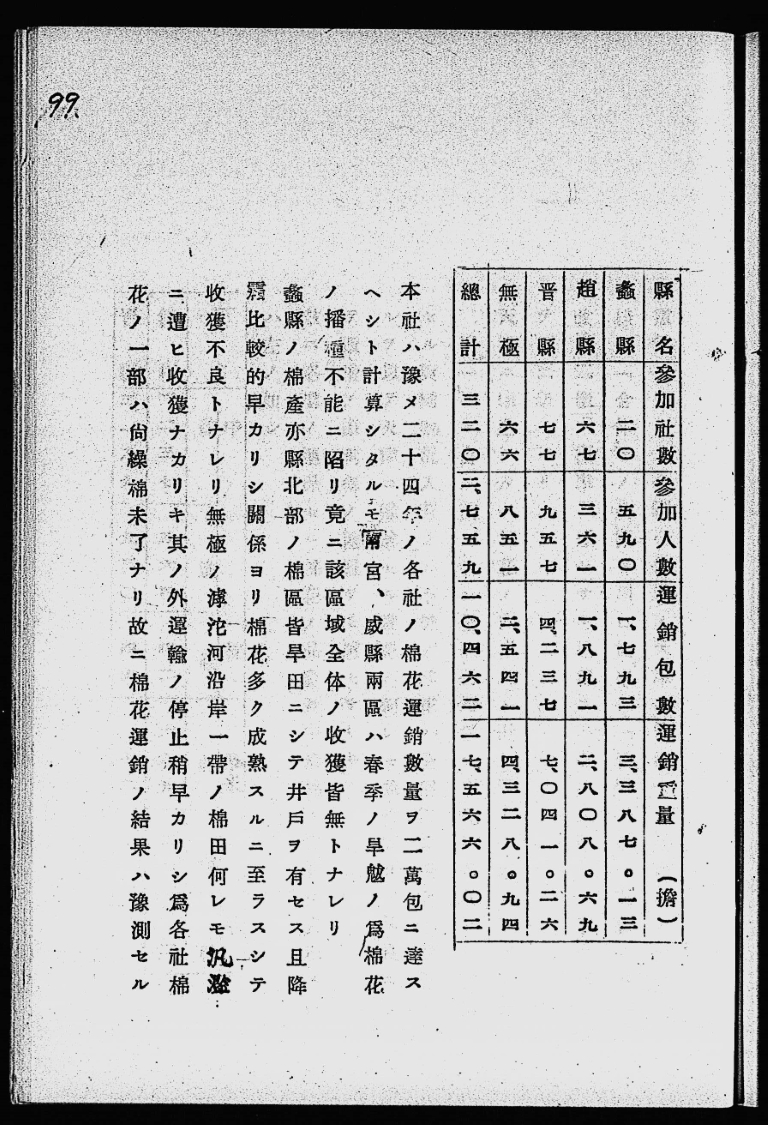 99.
縣名 參加社數 參加人數 運銷包數 運銷重量(擔)
蠡縣 二〇 五九〇 一、七九三 三、三八七。一三
趙縣 六七 三六一 一、八九一 二、八〇八。六九
晋縣 七七 九五七 四、二三七 七、〇四一。二六
無極 六六 八五一 二、五四一 四、三二八。九四
總計 三二〇 二、七五九 一〇、四六二 一七、五六六。〇二
本社ハ豫メ二十四年ノ各社ノ棉花運銷數量ヲ二萬包ニ達ス
ヘシト計算シタルモ南宮、威縣兩區ハ春季ノ旱魃ノ爲棉花
ノ播種不能ニ陷リ竟ニ該區域全体ノ收獲皆無トナレリ
蠡縣ノ棉產亦縣北部ノ棉區皆旱田ニシテ井戶ヲ有セス且降
霜比較的早カリシ關係ヨリ棉花多ク成熟スルニ至ラスシテ
收獲不良トナレリ無極ノ滹沱河沿岸一帶ノ棉田何レモ汎濫
ニ遭ヒ收獲ナカリキ其ノ外運輸ノ停止稍早カリシ爲各社棉
花ノ一部ハ尙繰棉未了ナリ故ニ棉花運銷ノ結果ハ豫測セル